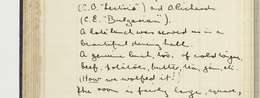 (C.O. "Lestris") and O.Richards
(C.E. "Bulganin").
A late lunch was served us in a
beautiful dining hall.
A genuine lunch, too, of cold
beef, potatoes, butter, tea, jam, etc
(How we wolfed it!)
The room is fairly large, square,